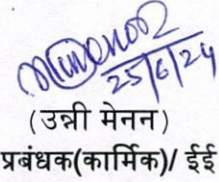 25/6/24
(उन्नी मेनन)
प्रबंधक(कार्मिक)/ ईई